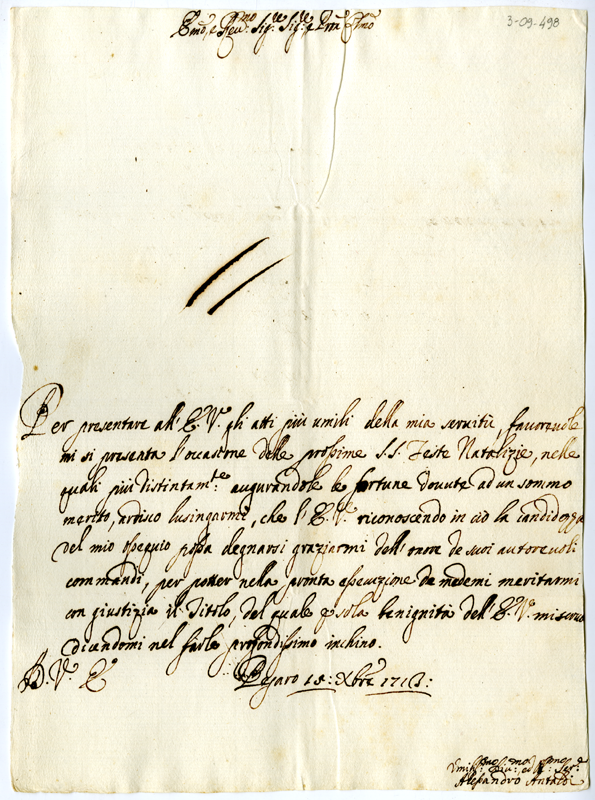 3-09-498
Emo, e Reumo Sigre Sigre e Prñ Colmo
Per presentare all' E. V. gli atti più umili della mia seruitù, fauoreuole
mi si presenta l'occasione delle prossime S.S. Feste Natalizie, nelle
quali più distintamte augurandole le fortune douute ad un sommo
merito, ardisco lusingarmi, che l' E. V. riconoscendo in ciò la candidezza
del mio ossequio possa degnarsi graziarmi dell' onore de suoi autoreuoli
commandi, per potter nella pronta essecuzione de medemi meritarmi
con giustizia il Titolo, del quale è sola benignità dell' E. V.
dicendomi nel farle profondissimo inchino.
D. V. E.
Pesaro 15: Xbre
Umilmo Diumo ed Obmo Serre
Alessandro Antaldi